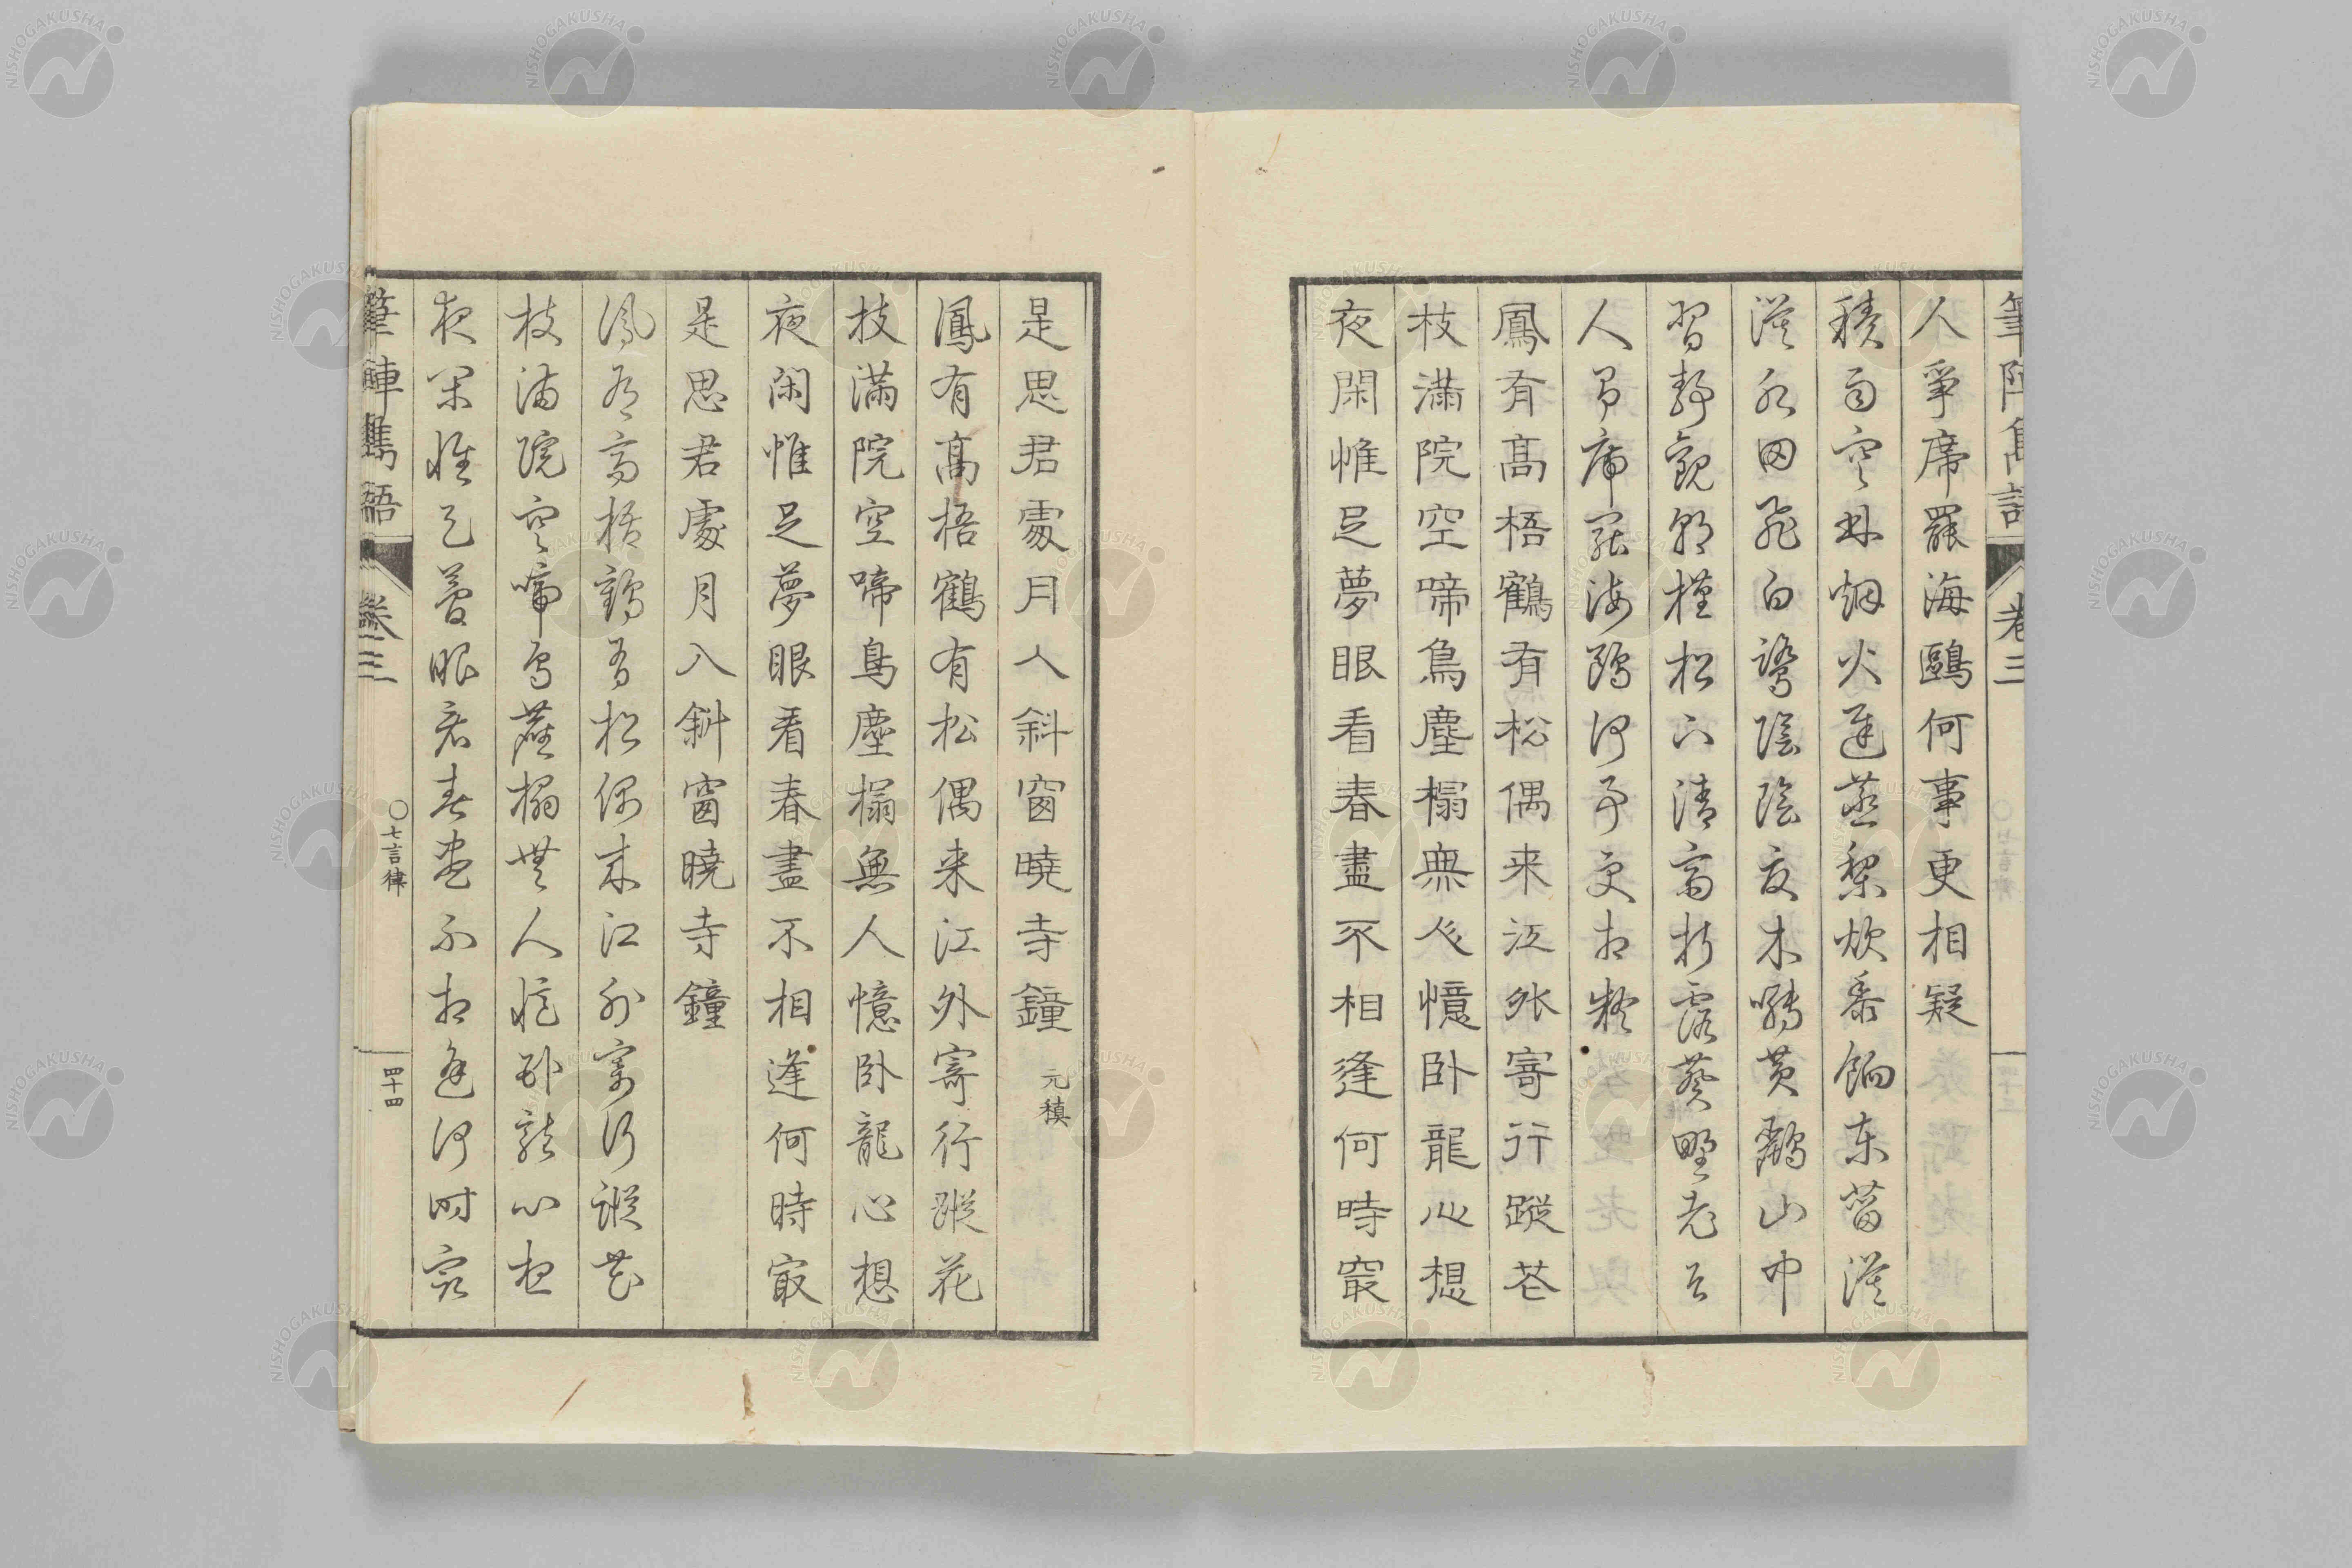 筆陣雋語 卷三
人爭席罷海鷗何事更相疑
積雨空林烟火遲蒸藜炊黍餉東菑漠
漠水田飛白鷺陰陰夏木囀黄鸝山中
習靜觀朝槿松下清齋折露葵野老與
人爭席罷海鷗何事更相疑
鳳有髙梧鶴有松偶来江外寄行蹤花
枝滿院空啼鳥塵榻無人憶卧龍心想
夜閑惟足夢眼看春盡不相逢何時㝡
是思君處月入斜窗曉寺鐘 元稹
鳳有髙梧鶴有松偶来江外寄行蹤花
枝滿院空啼鳥塵榻無人憶卧龍心想
夜閑惟足夢眼看春盡不相逢何時㝡
是思君處月入斜窗曉寺鐘
鳳有高梧鶴有松偶来江外寄行蹤花
枝滿院空啼鳥塵榻無人憶卧龍心想
夜閑惟足夢眼看春盡不相逢何時㝡
筆陣雋語 卷三 〇七言律 四十四
NISHOGAKUSHA